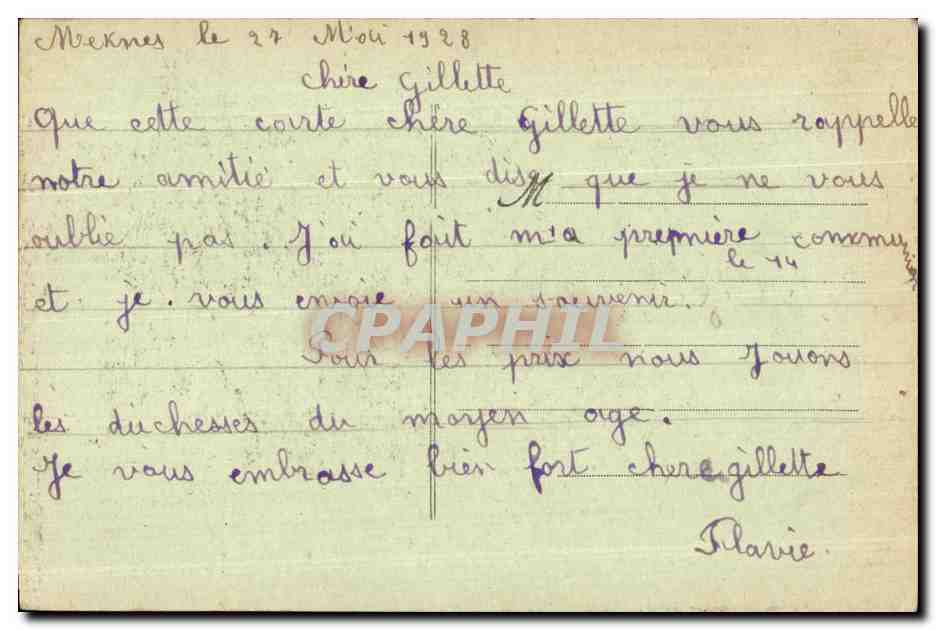 Meknes le 27 Mai 1928
Chère Gillette
Que cette carte chère Gillette vous rappelle
notre amitié et vous dise que je ne vous
oublie pas. J'ai fait ma première communion
le 14
et je vous envoie un souvenir.
CPAPHIL
Pour les prix nous Jouons
les duchesses du moyen age.
Je vous embrasse bien fort chere gillette
Flavie.